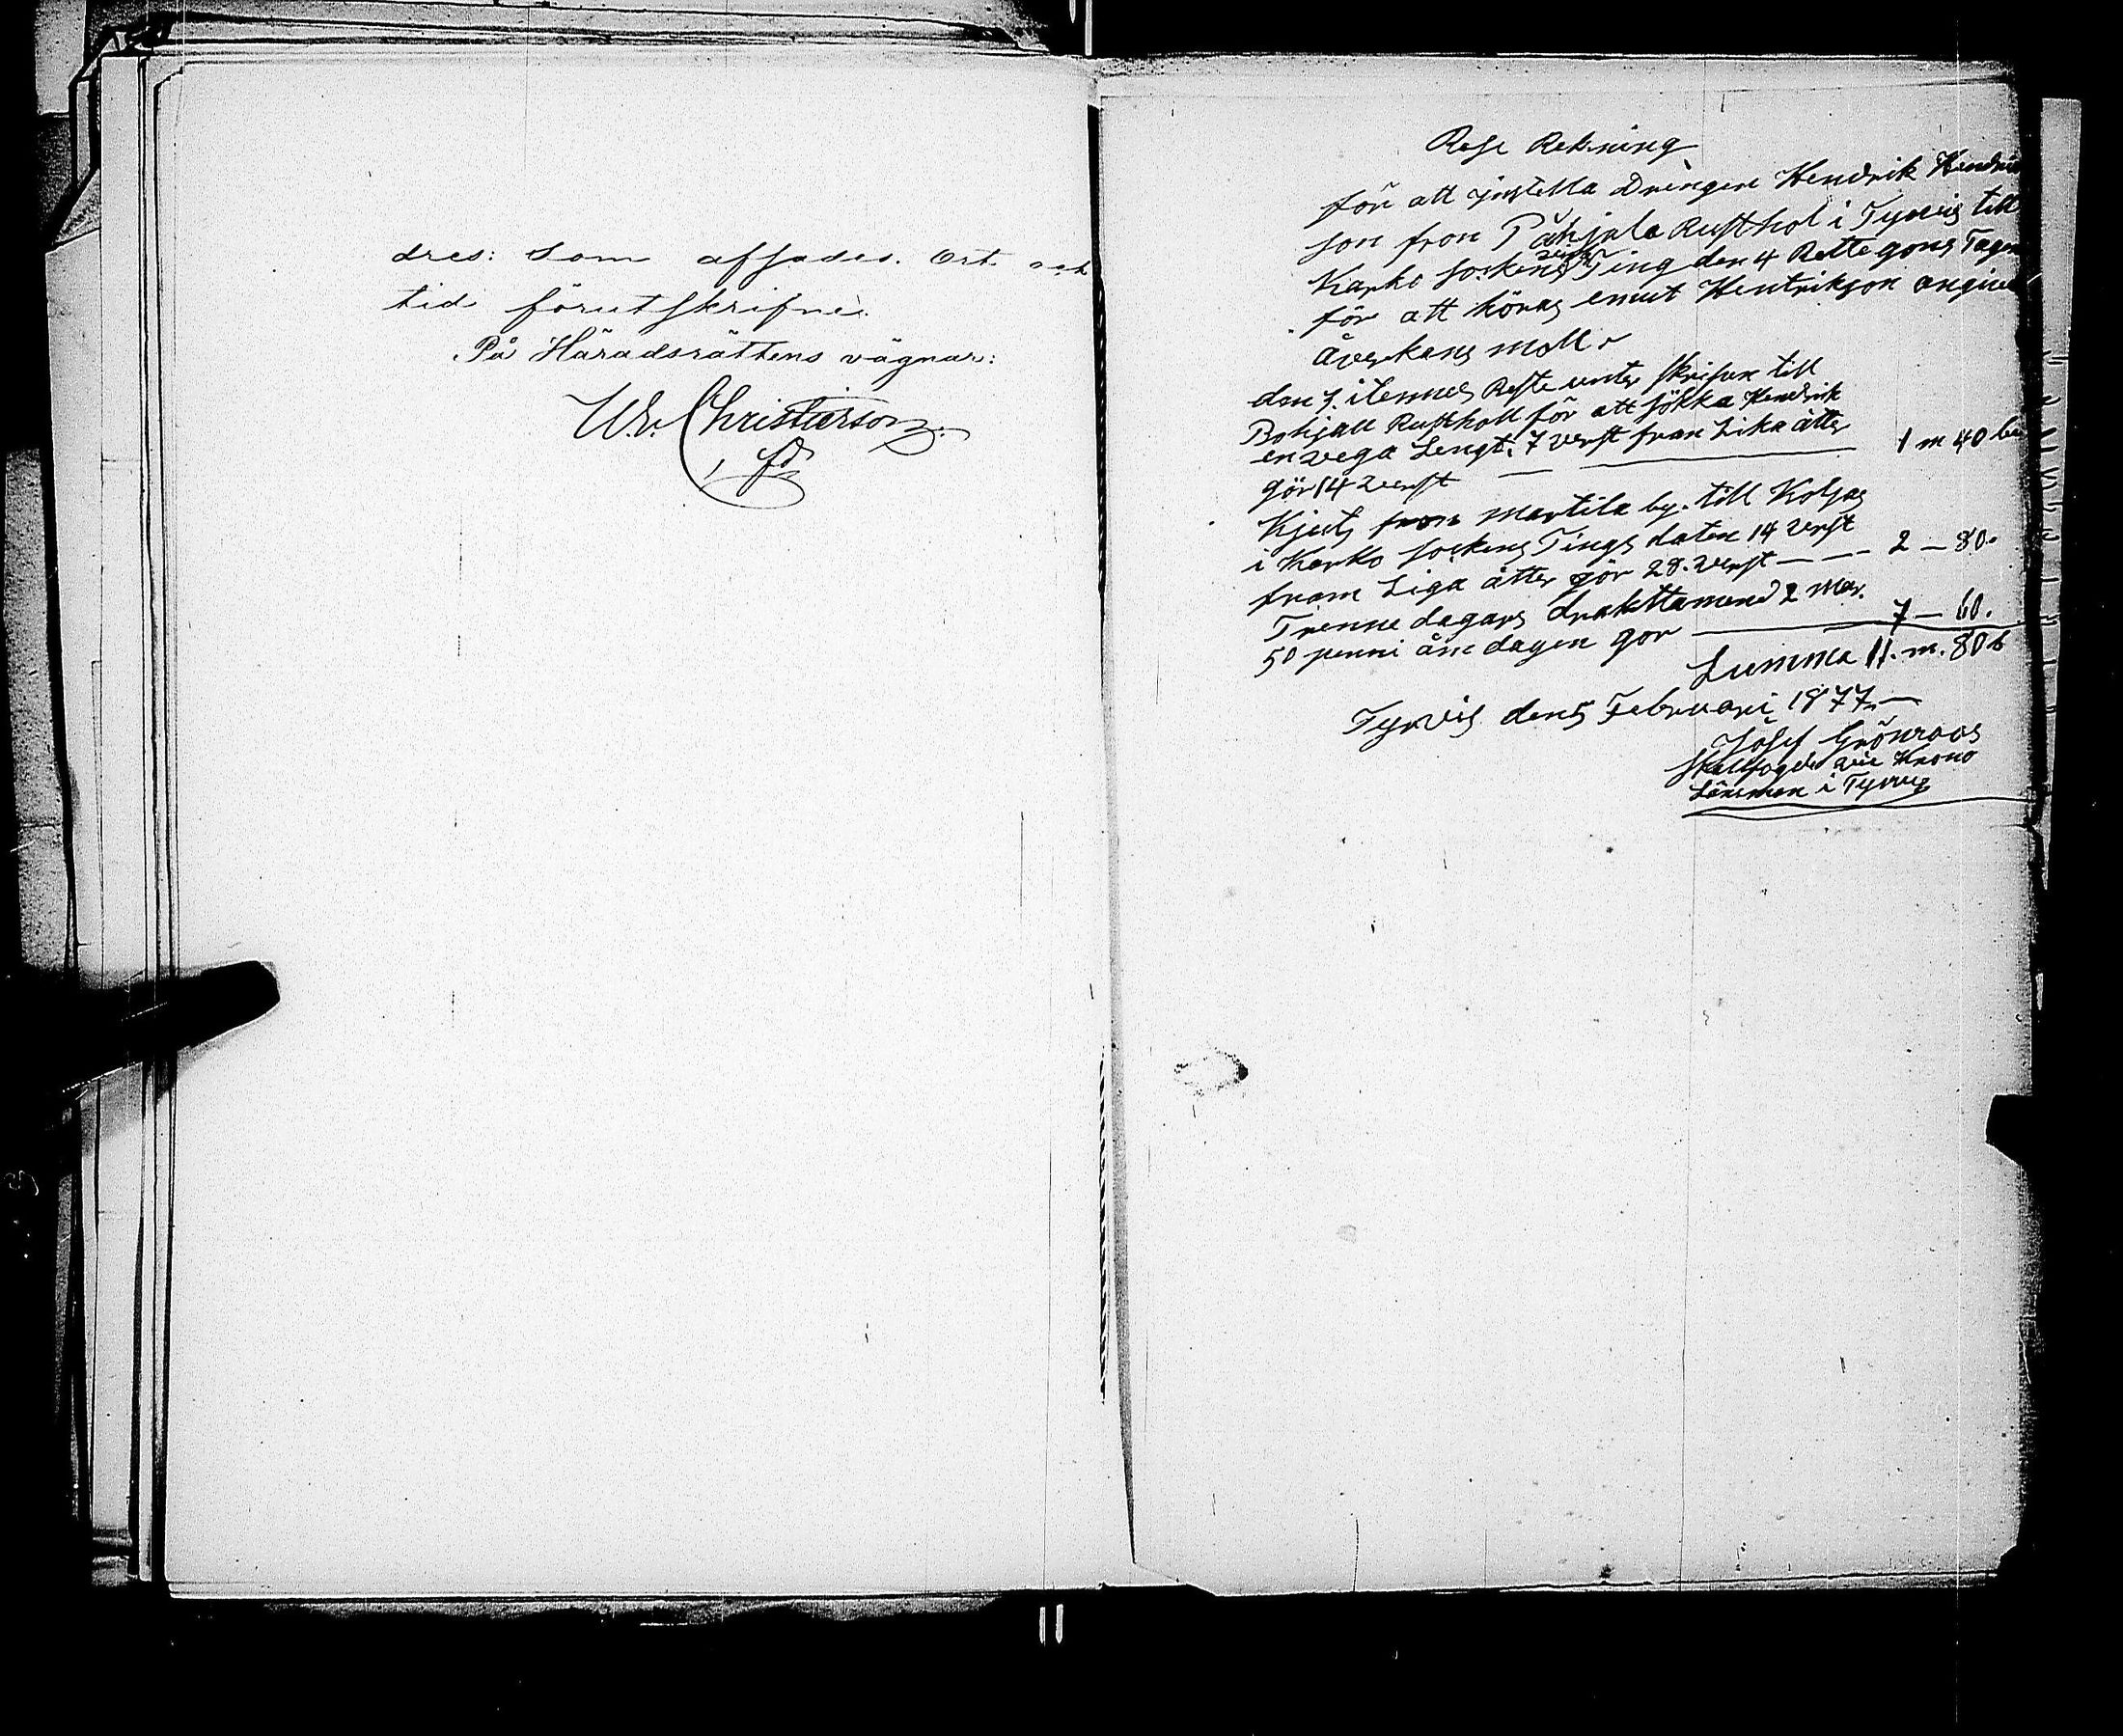 dres: Som afsades. Ort och
tid förutskrifne.
På Häradsrättens vägnar:
W. Christierson.
Rese Rekning
för att instella Drengen Hendrik Hendrik
son fron Påhjala Rusthol i Tyrvis till
Karko Sockens Ting den 4 Rettegons Tagen
för att höras emut Hentrikson angiven
Åverkans moll
den 1. itennes Reste unter skrifen till
Pohjall Rusthall för att sökka Hendrik
en vega Lengt. 7 verst fran Lika åtter
gör 14 verst — 1 m 40
Kjuts fron Martila by. till Koljas
i Karko sockens Tings daten 14 verst
fram Liga åtter gör 28. verst — 2 — 80.
Trenne dagars draktamend 2 mar.
50 penni åm dagen gör — 7 — 60.
Summa 11. m. 80
Tyrvis den 5 Februari 1877.
Josef Grönroos
Skallfogde vice Krono
Länsman i Tyrvis